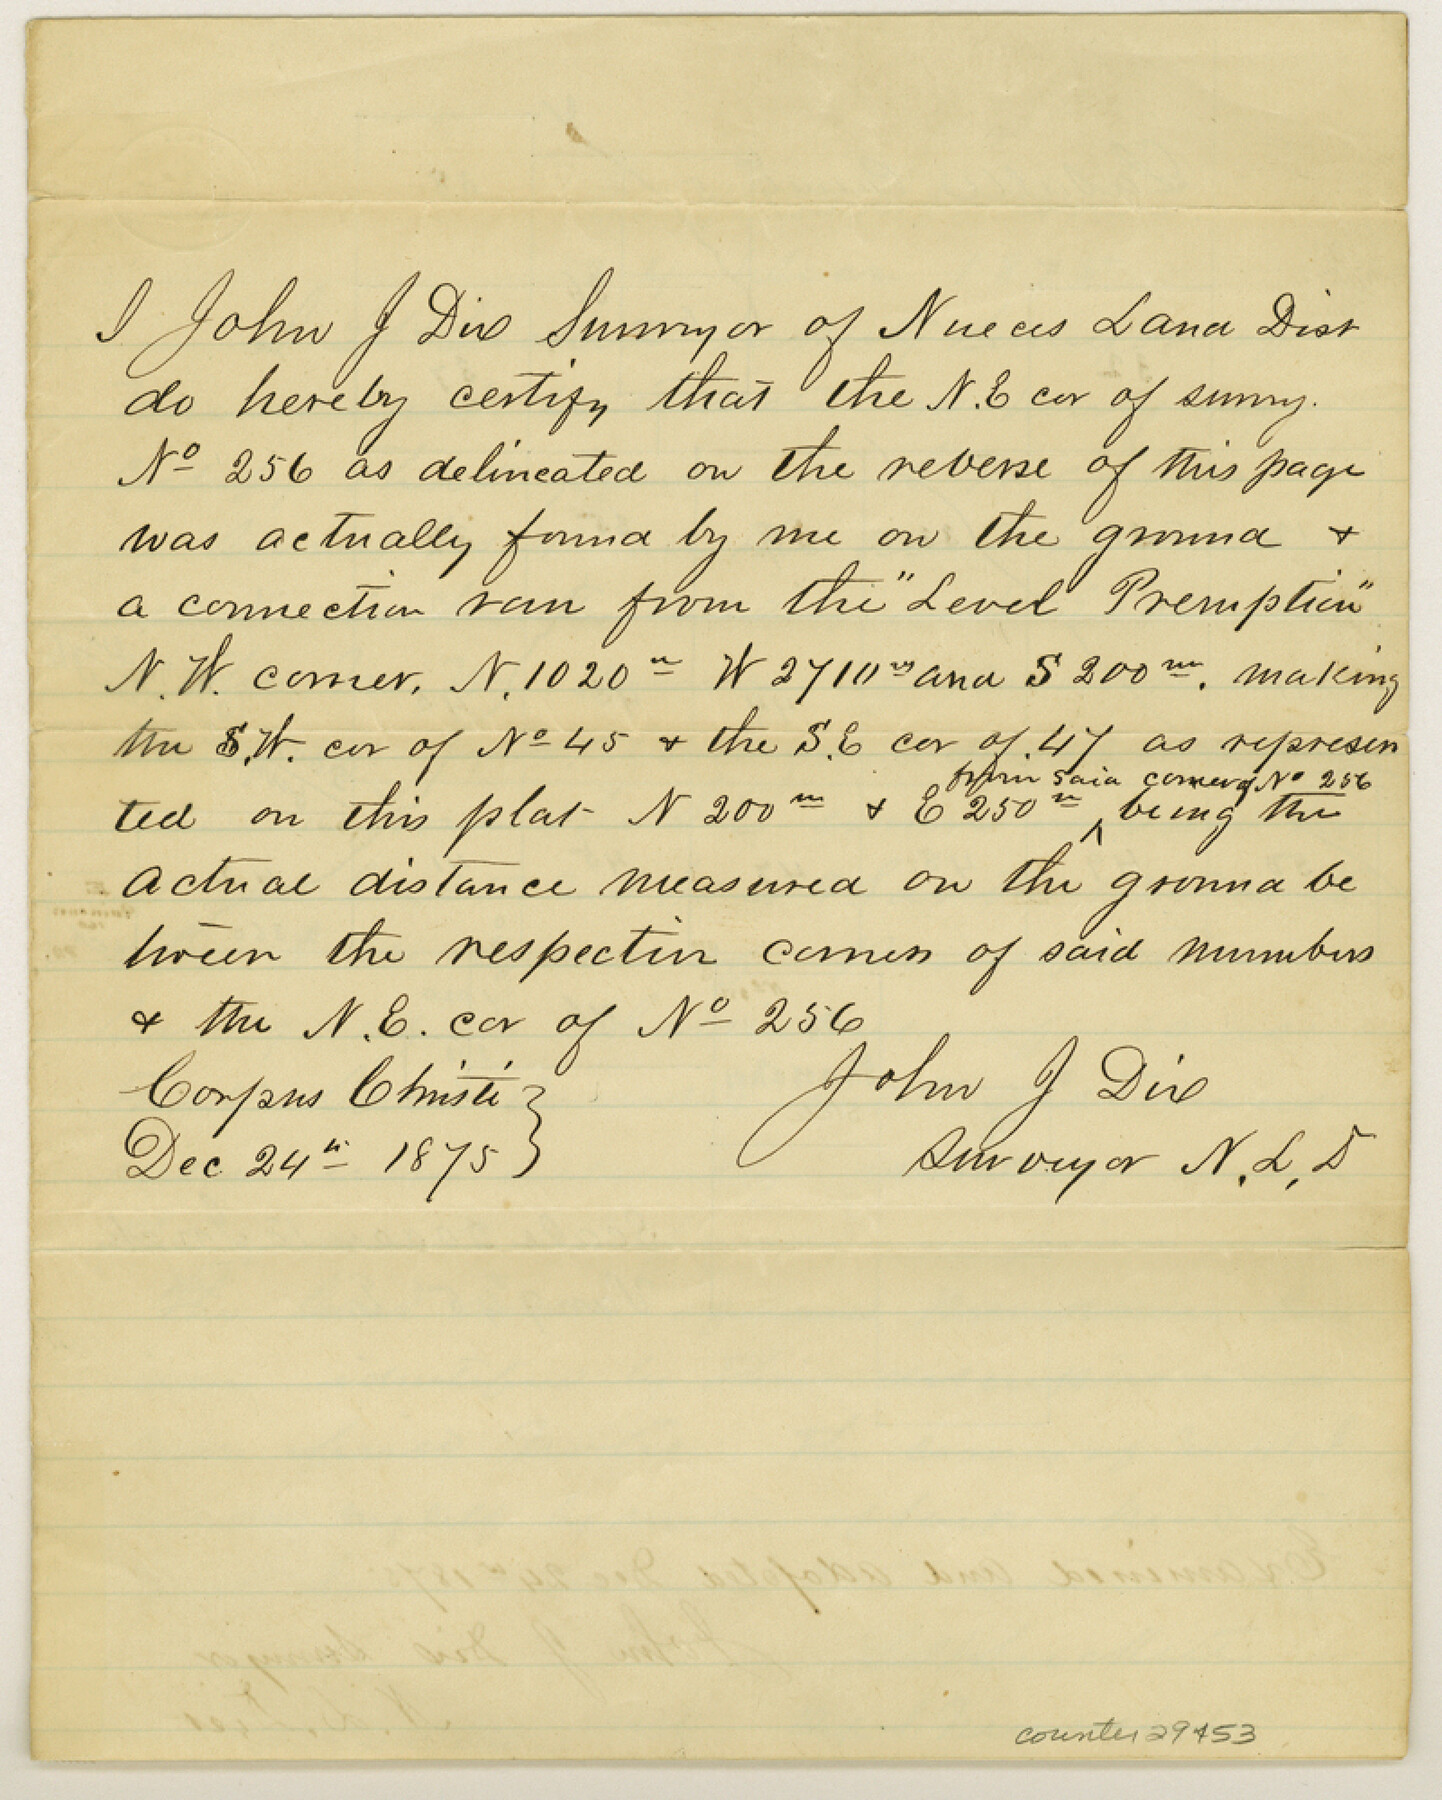 I John J Dix Surveyor of Nueces Land Dist
do hereby certify that the N.E cor of survy.
No 256 as delineated on the reverse of this page
was actually found by me on the ground &
a connection ran from the "Level Premption"
N.W. corner, N. 1020 vs W 2710 vs and S 200 vs. making
the S.W. cor of No 45 & the S.E cor of 47 as represen
from said corner of No 256
ted on this plat N 200 vs & E 250 vs ^ being the
actual distance measured on the ground be
tween the respective corners of said numbers
& the N.E. cor of No 256
Corpus Christi }
Dec 24th 1875 }
John J Dix
Surveyor N. L. D
Examined and adopted Dec 24th 1875
John J Dix Surveyor
N. L. Dist
counter 29453